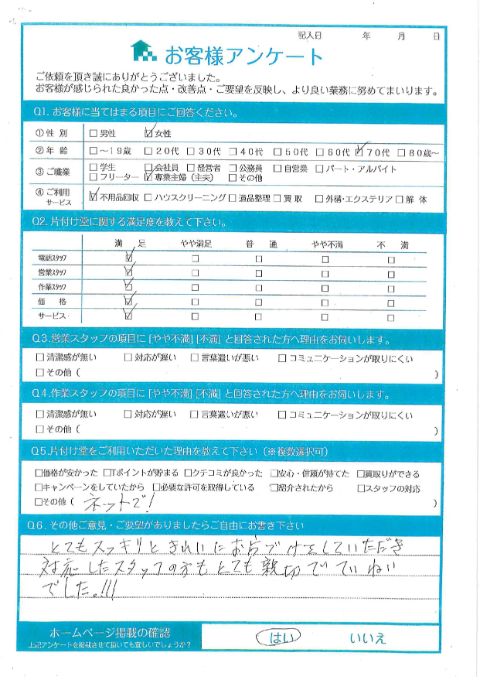 記入日 年 月 日
お客様アンケート
ご依頼を頂き誠にありがとうございました。
お客様が感じられた良かった点・改善点・ご要望を反映し、より良い業務に努めてまいります。
Q1. お客様に当てはまる項目にご回答ください。
①性 別 □男性 ☑女性
②年 齢 □～19歳 □20代 □30代 □40代 □50代 □60代 ☑70代 □80歳～
③ご職業 □学生 □会社員 □経営者 □公務員 □自営業 □パート・アルバイト
□フリーター ☑専業主婦（主夫） □その他
④ご利用サービス ☑不用品回収 □ハウスクリーニング □遺品整理 □買取 □外構・エクステリア □解体
Q2. 片付け堂に関する満足度を教えて下さい。
満 足 やや満足 普 通 やや不満 不 満
電話スタッフ ☑ □ □ □ □
営業スタッフ ☑ □ □ □ □
作業スタッフ ☑ □ □ □ □
価 格 ☑ □ □ □ □
サービス ☑ □ □ □ □
Q3. 営業スタッフの項目に [やや不満] [不満] と回答された方へ理由をお伺いします。
□清潔感が無い □対応が遅い □言葉遣いが悪い □コミュニケーションが取りにくい
□その他（ ）
Q4. 作業スタッフの項目に [やや不満] [不満] と回答された方へ理由をお伺いします。
□清潔感が無い □対応が遅い □言葉遣いが悪い □コミュニケーションが取りにくい
□その他（ ）
Q5. 片付け堂をご利用いただいた理由を教えて下さい（※複数選択可）
□価格が安かった □Tポイントが貯まる □クチコミが良かった □安心・信頼が持てた □買取りができる
□キャンペーンをしていたから □必要な許可を取得している □紹介されたから □スタッフの対応
□その他（ ネットで! ）
Q6. その他ご意見・ご要望がありましたらご自由にお書き下さい
とてもスッキリときれいにお片づけをしていただき
対応したスタッフの方もとても親切でていねい
でした。!!!
ホームページ掲載の確認 はい いいえ
上記アンケートを掲載させて頂いても宜しいでしょうか?